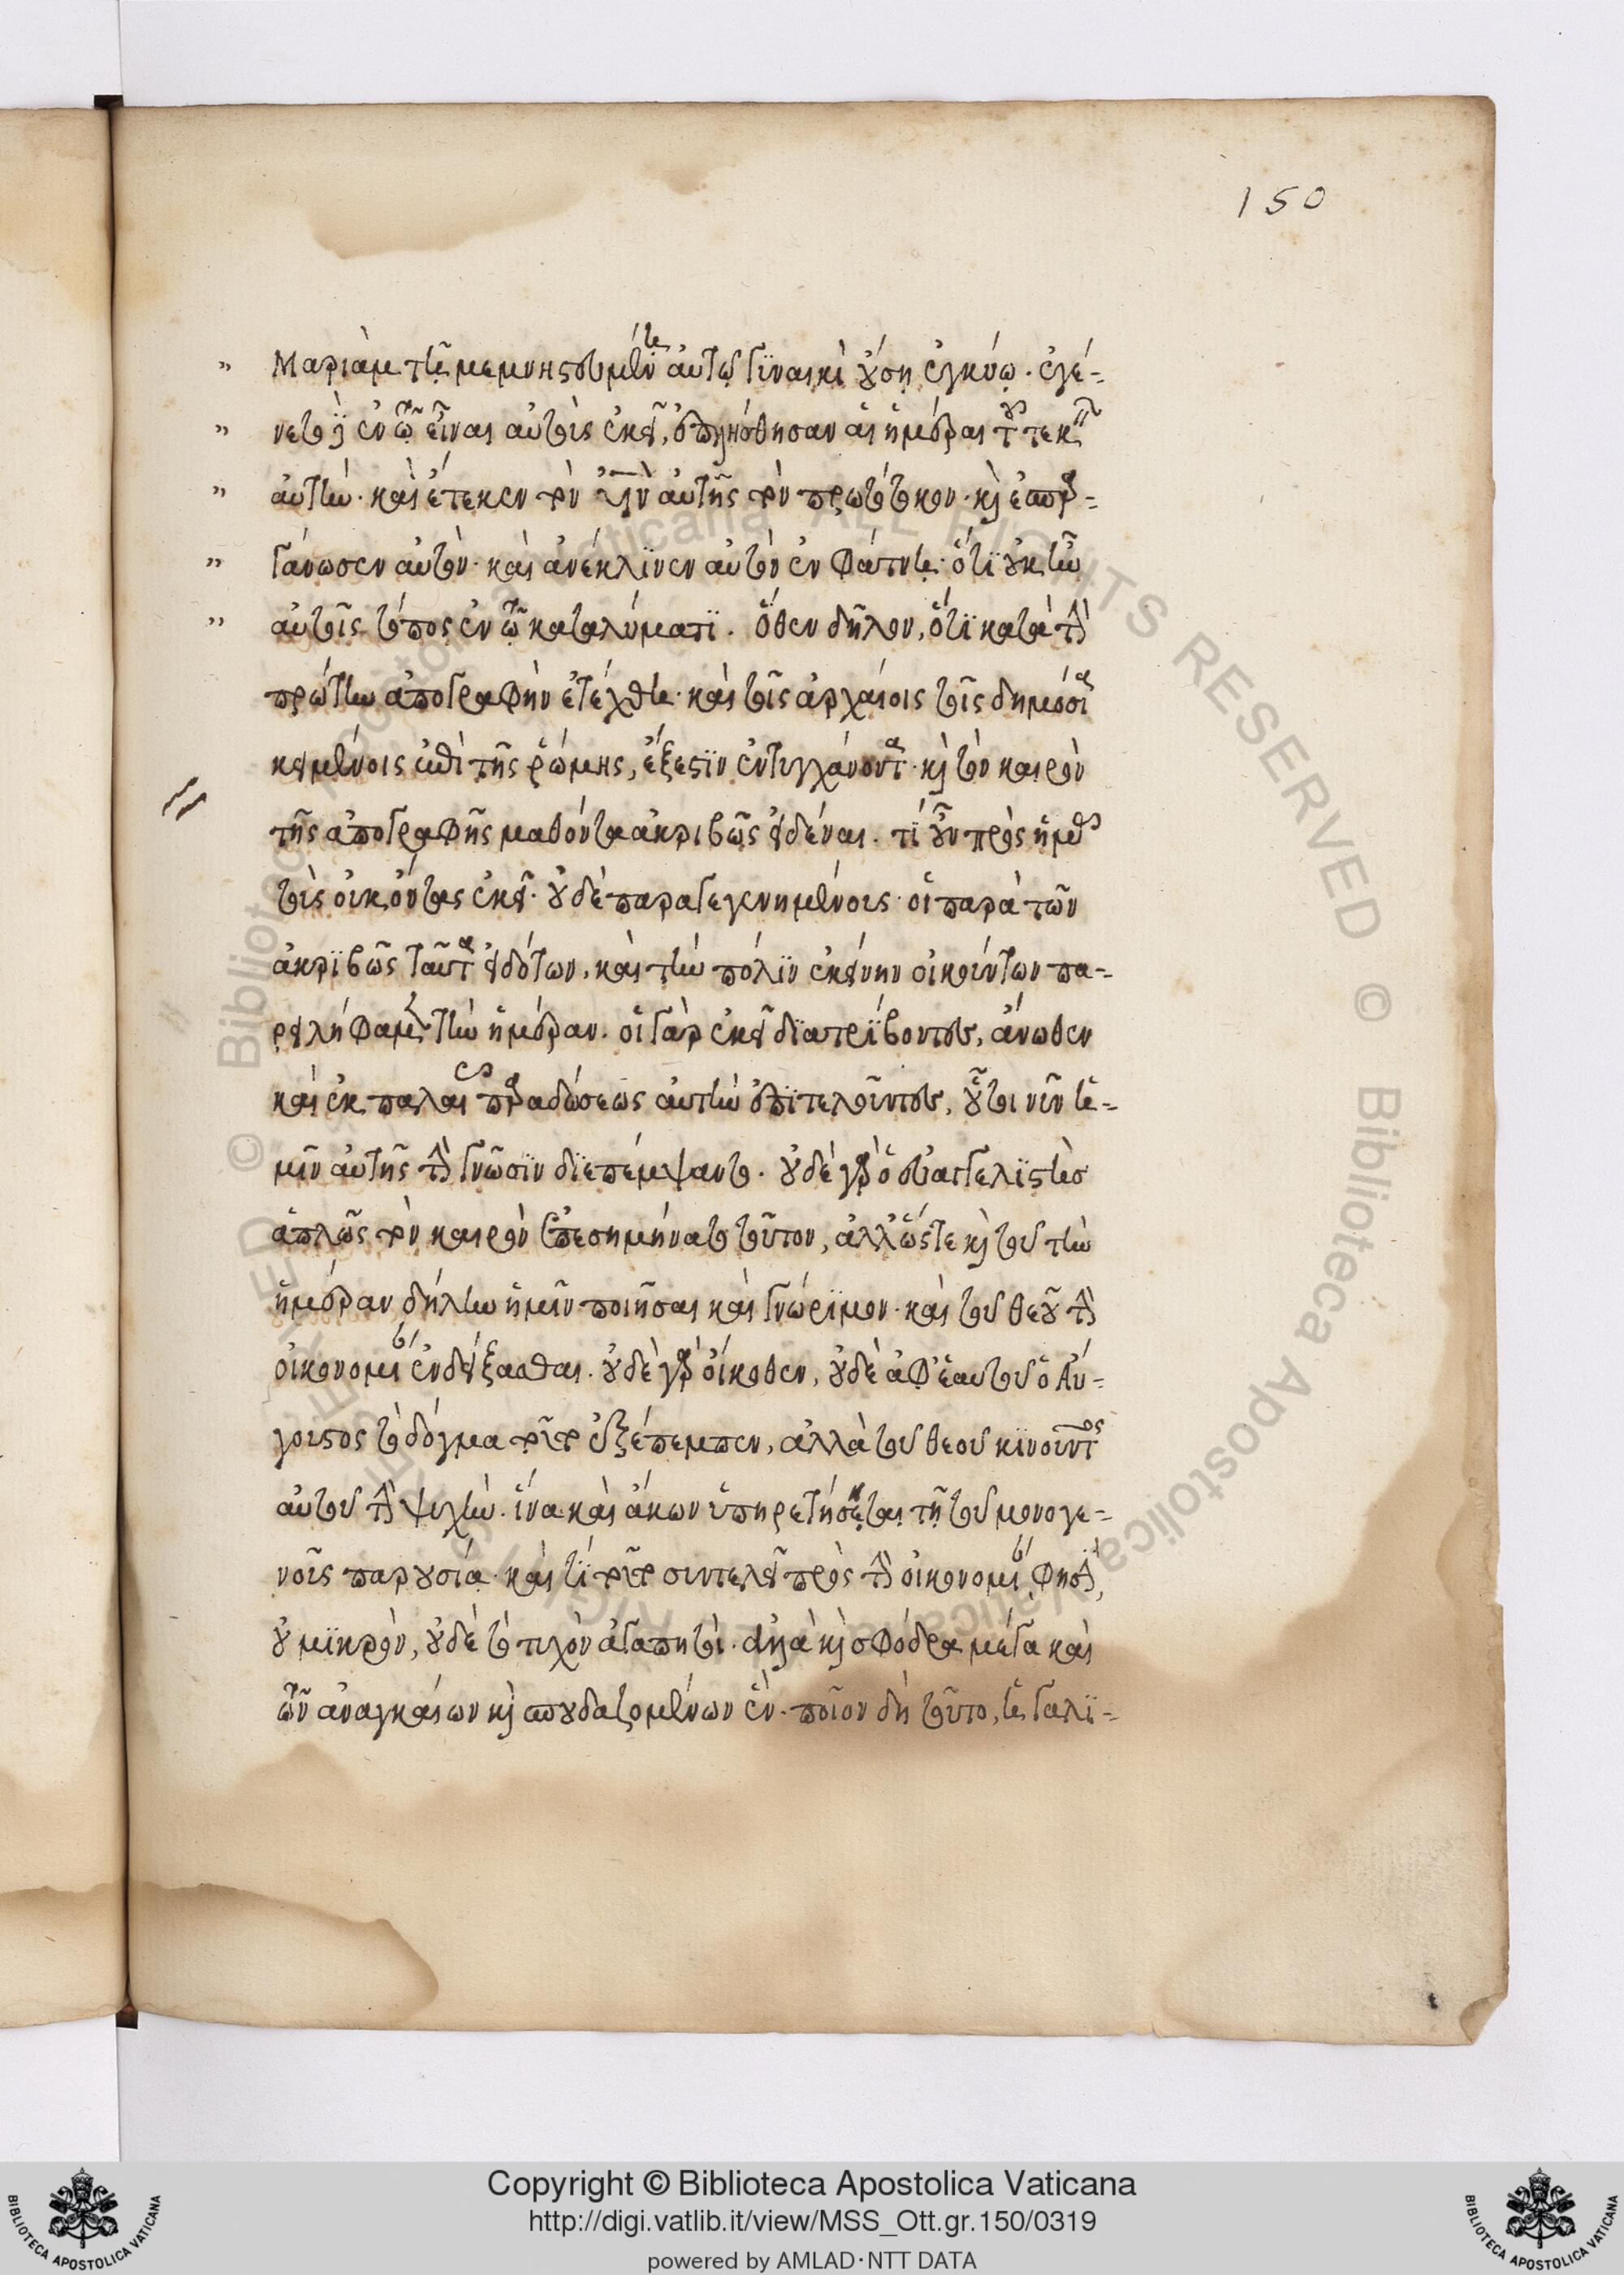 150
Μαριὰμ τῇ μεμνηστευμένῃ αὐτῷ γυναικὶ οὔσῃ ἐγκύῳ. ἐγέ-
νετο δὲ ἐν τῷ εἶναι αὐτοὺς ἐκεῖ, ἐπλήσθησαν αἱ ἡμέραι τοῦ τεκεῖν
αὐτήν. καὶ ἔτεκεν τὸν υἱὸν αὐτῆς τὸν πρωτότοκον. καὶ ἐσπαρ-
γάνωσεν αὐτόν. καὶ ἀνέκλινεν αὐτὸν ἐν φάτνῃ. ὅτι οὐκ ἦν
αὐτοῖς τόπος ἐν τῷ καταλύματι. ὅθεν δῆλον, ὅτι κατὰ τὴν
πρώτην ἀπογραφὴν ἐτέχθη. καὶ τοῖς ἀρχαίοις τοῖς δημοσίᾳ
κειμένοις ἐπὶ τῆς ῥώμης, ἔξεστιν ἐντυγχάνοντα. καὶ τὸν καιρὸν
τῆς ἀπογραφῆς μαθόντα ἀκριβῶς εἰδέναι. τί οὖν πρὸς ἡμᾶς
τοὺς οἰκοῦντας ἐκεῖ. οὐδὲ παραγεγενημένοις. οἱ παρὰ τῶν
ἀκριβῶς ταῦτα εἰδότων, καὶ τὴν πόλιν ἐκείνην οἰκούντων πα-
ρειλήφαμεν τὴν ἡμέραν. οἱ γὰρ ἐκεῖ διατρίβοντες, ἄνωθεν
καὶ ἐκ παλαιᾶς παραδόσεως αὐτὴν ἐπιτελοῦντες, οὗτοι νῦν ἡ-
μῖν αὐτῆς τὴν γνῶσιν διεπέμψαντο. οὐδὲ γὰρ ὁ εὐαγγελιστὴς
ἁπλῶς τὸν καιρὸν ἐπεσημήνατο τοῦτον, ἀλλ' ὥστε καὶ τοῦ τὴν
ἡμέραν δήλην ἡμῖν ποιῆσαι καὶ γνώριμον. καὶ τοῦ θεοῦ τὴν
οἰκονομίαν ἐνδείξασθαι. οὐδὲ γὰρ οἴκοθεν, οὐδὲ ἀφ' ἑαυτοῦ ὁ Αὔ-
γουστος τὸ δόγμα τοῦτο ἐξέπεμπεν, ἀλλὰ τοῦ θεοῦ κινοῦντος
αὐτοῦ τὴν ψυχήν. ἵνα καὶ ἄκων ὑπηρετήσηται τῇ τοῦ μονογε-
νοῦς παρουσίᾳ. καὶ τί τοῦτο συντελεῖ πρὸς τὴν οἰκονομίαν φησὶν,
οὐ μικρὸν, οὐδὲ τὸ τυχὸν ἀγαπητοὶ. ἀλλὰ καὶ σφόδρα μέγα καὶ
τῶν ἀναγκαίων καὶ σπουδαζομένων ἕν. ποῖον δὴ τοῦτο, ἡ Γαλι-
Copyright © Biblioteca Apostolica Vaticana
http://digi.vatlib.it/view/MSS_Ott.gr.150/0319
powered by AMLAD·NTT DATA